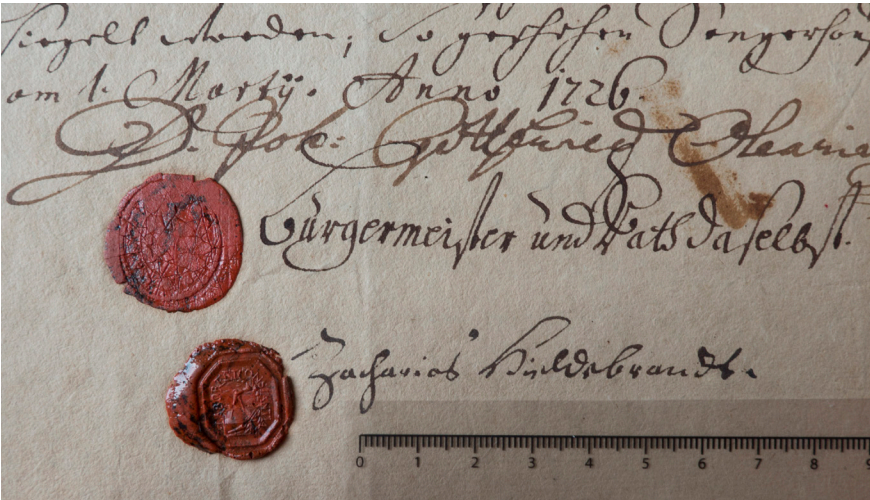 siegelt worden; So geschehen Sangerhau
am 1. Martÿ. Anno 1726.
D. Joh: Gottfried Oleariu
Bürgermeister und Rath daselbst.
Zacharias Hildebrandt.
0 1 2 3 4 5 6 7 8 9